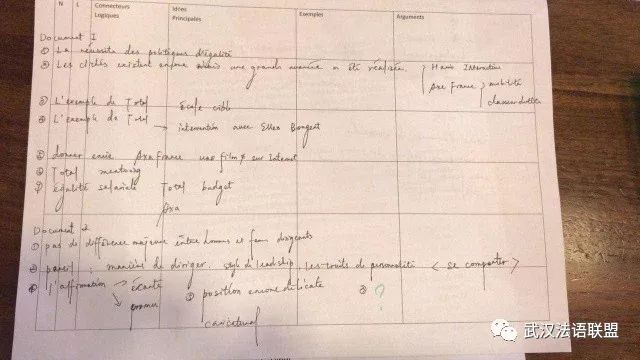 N L Connecteurs Logiques Idées Principales Exemples Arguments
Document 1
① La nécessité des politiques d'égalité
② Les clichés existent encore mais une grande avancée a été réalisée.
Axa France mobilité
③ L'exemple de Total
④ L'exemple de Total
intervention avec
⑤ donner envie Axa France une film sur Internet
⑥ Total mentoring
⑦ égalité salariale Total budget
Axa
Document 2
① pas de différence majeure entre hommes et dirigeants
② pareil : manières de diriger style de leadship les traits de personnalité < se comporter >
l'affirmation → écarté ② position encore délicate ③ ?
caricatural
武汉法语联盟